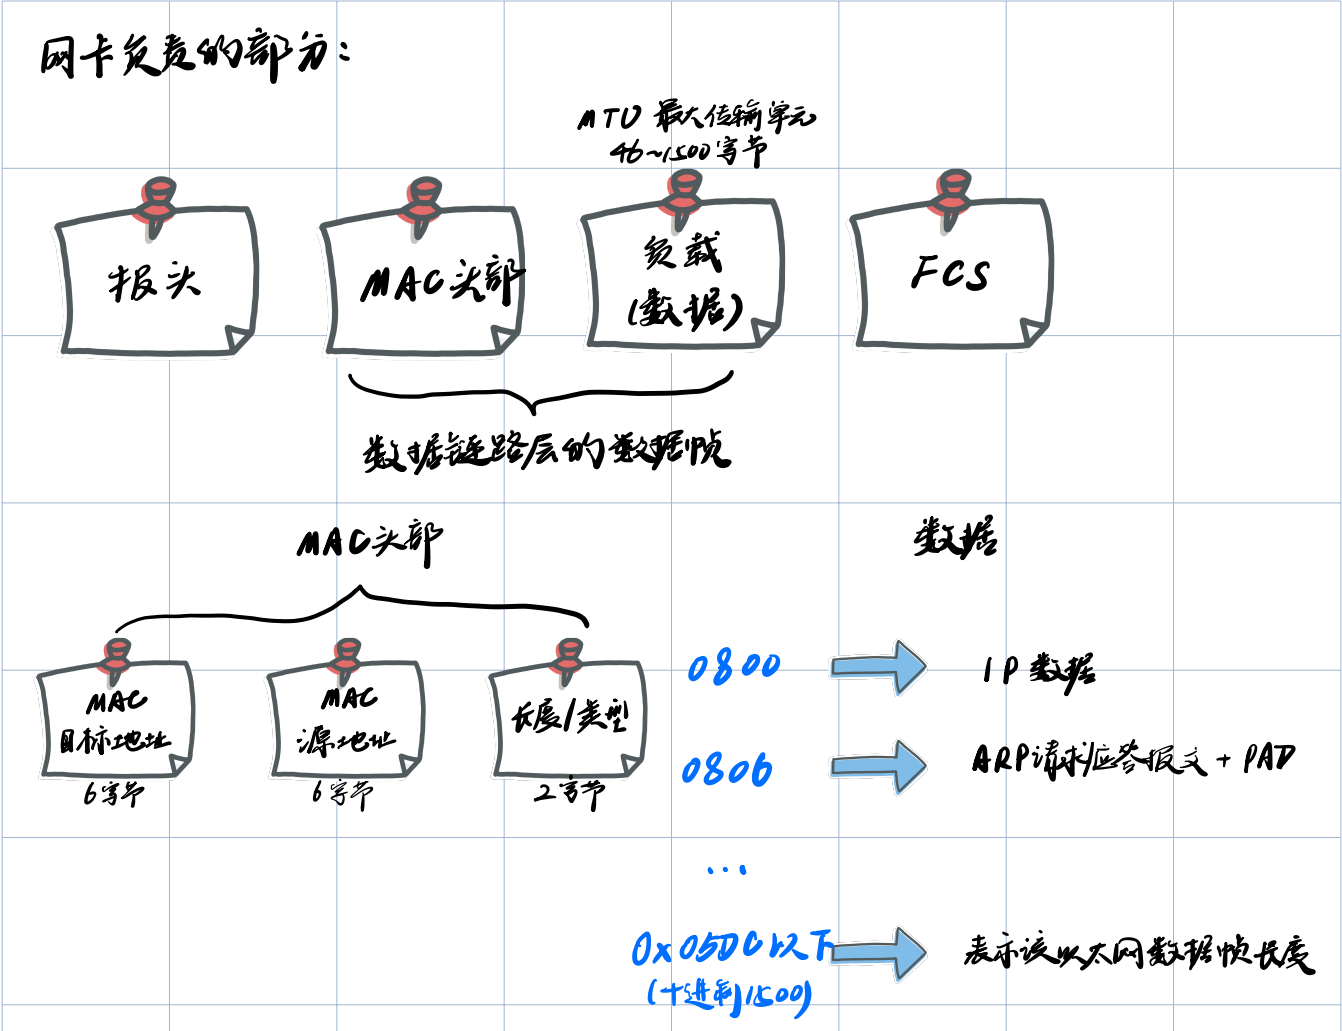 网卡负责的部分:
MTU 最大传输单元
46~1500字节
报头
MAC头部
负载
(数据)
FCS
数据链路层的数据帧
MAC头部
数据
MAC
目标地址
6字节
MAC
源地址
6字节
长度/类型
2字节
0800
IP数据
0806
ARP请求/应答报文+PAD
...
0x05DC以下
(十进制1500)
表示该以太网数据帧长度